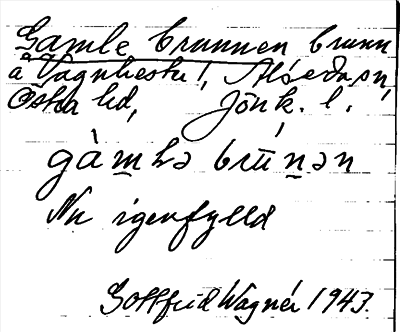 Gamle brunnen brunn
å Vagnhester 1, Alseda sn,
Östra hd, Jönk. l.
gàm̲lə brūn̲ən
Nu igenfylld
Gottfrid Wagnér 1943.